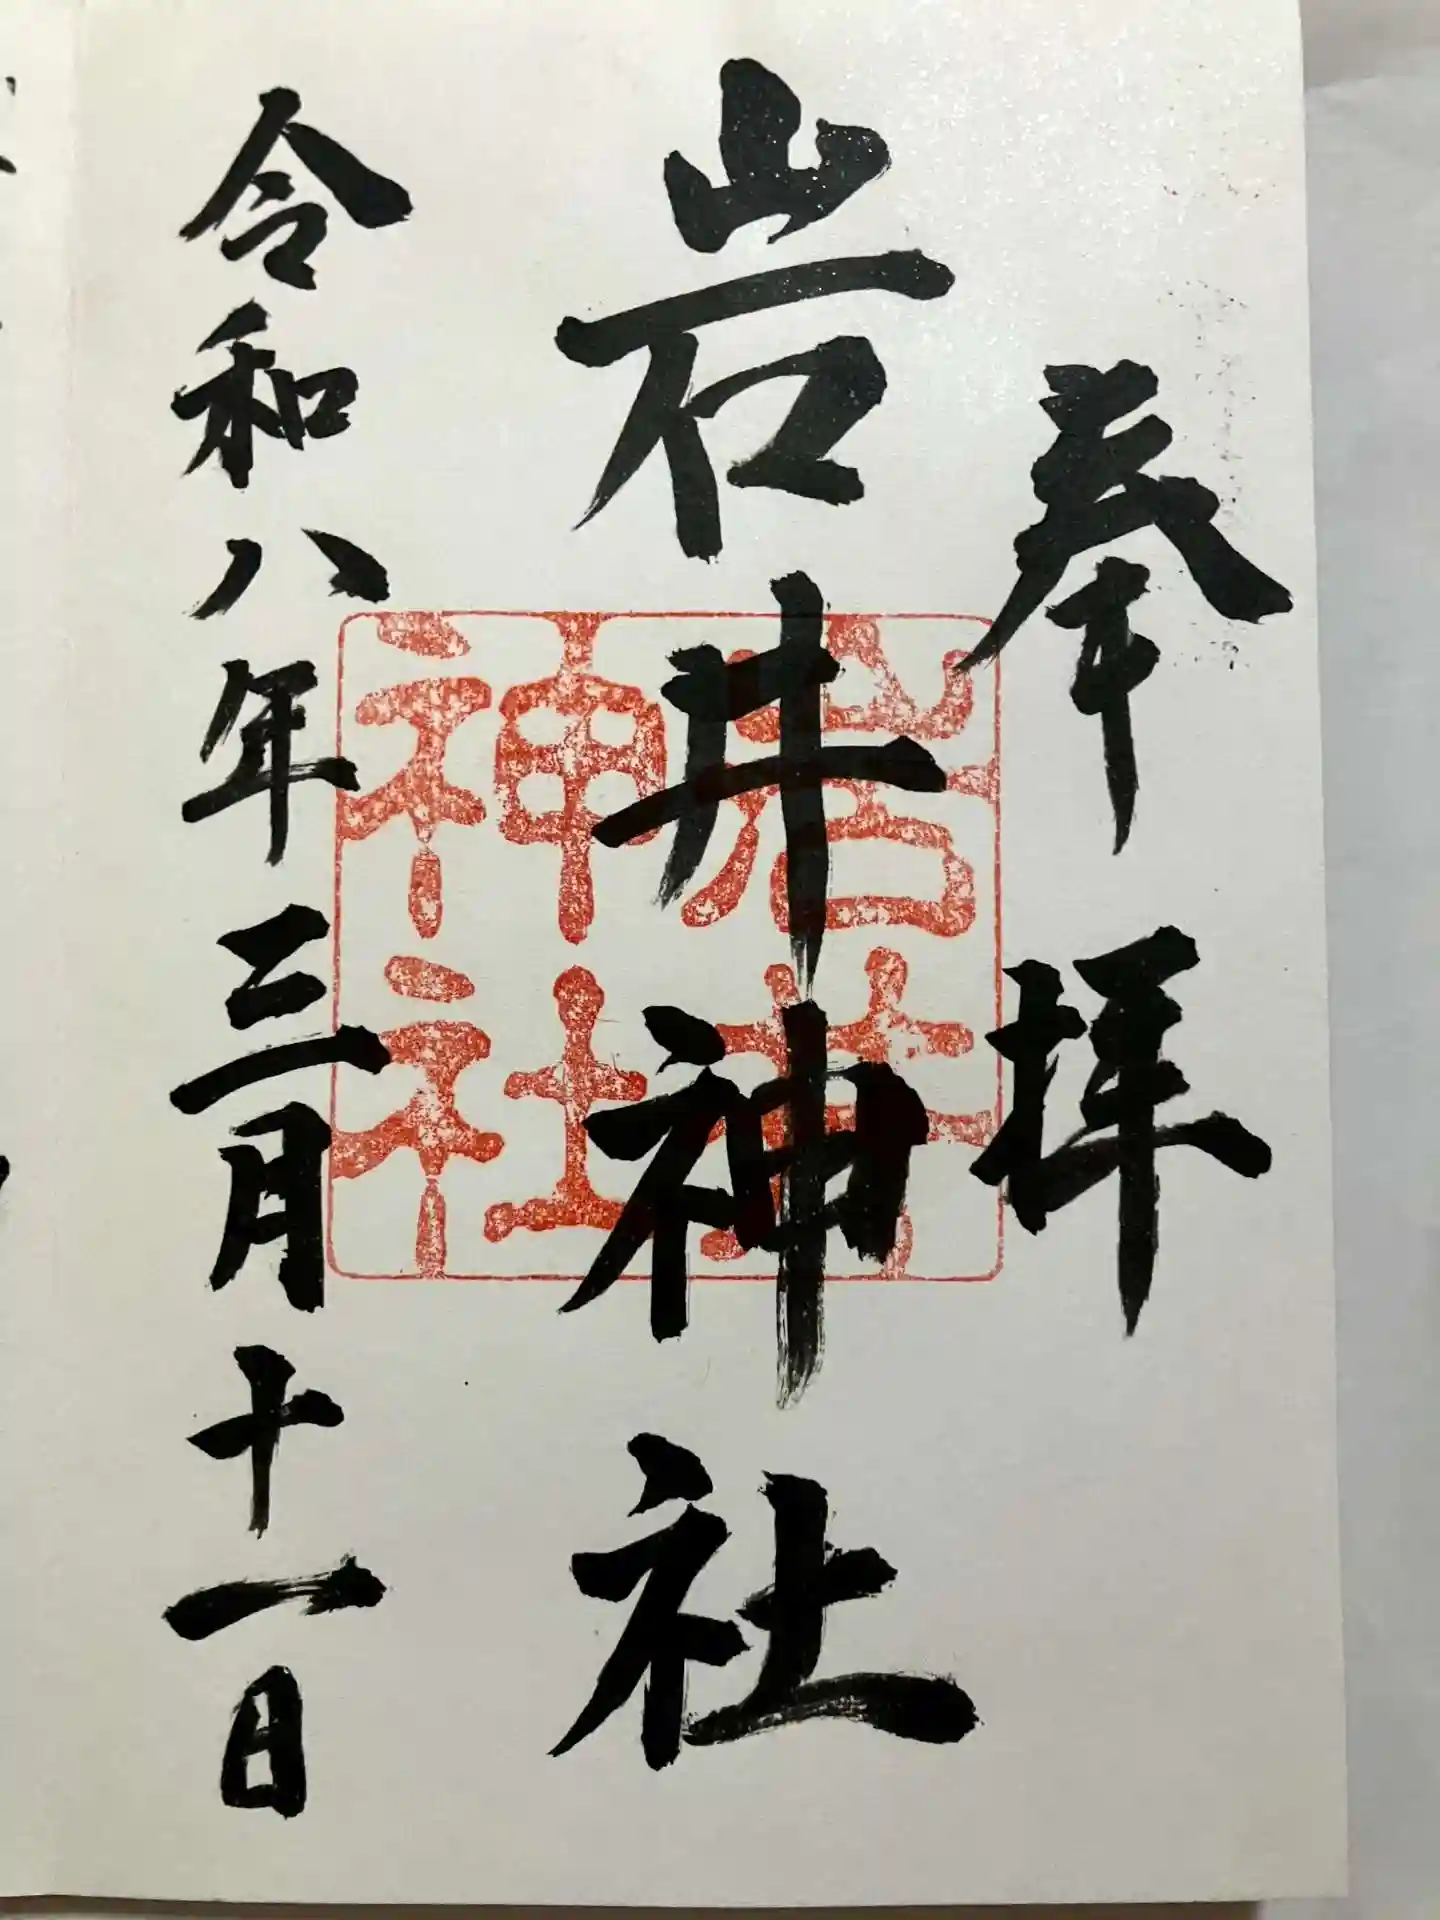 奉拝
岩井神社
岩井神社
令和八年三月十一日